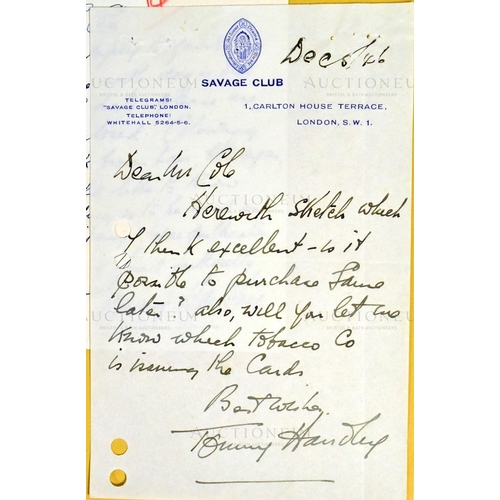 Dec 6/46
SAVAGE CLUB
TELEGRAMS:
"SAVAGE CLUB", LONDON.
TELEPHONE:
WHITEHALL 5264-5-6.
1, CARLTON HOUSE TERRACE,
LONDON, S.W. 1.
Dear Mr Cole
Herewith sketch which
I think excellent - is it
possible to purchase same
later? also, will you let me
know which tobacco Co
is issuing the Cards
Best wishes
Tommy Handley
AUCTIONEUM